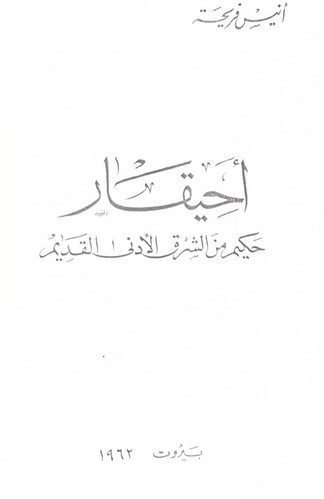 أنيس فريحة
أحيقار
حكيم من الشرق الأدنى القديم
بيروت ١٩٦٢